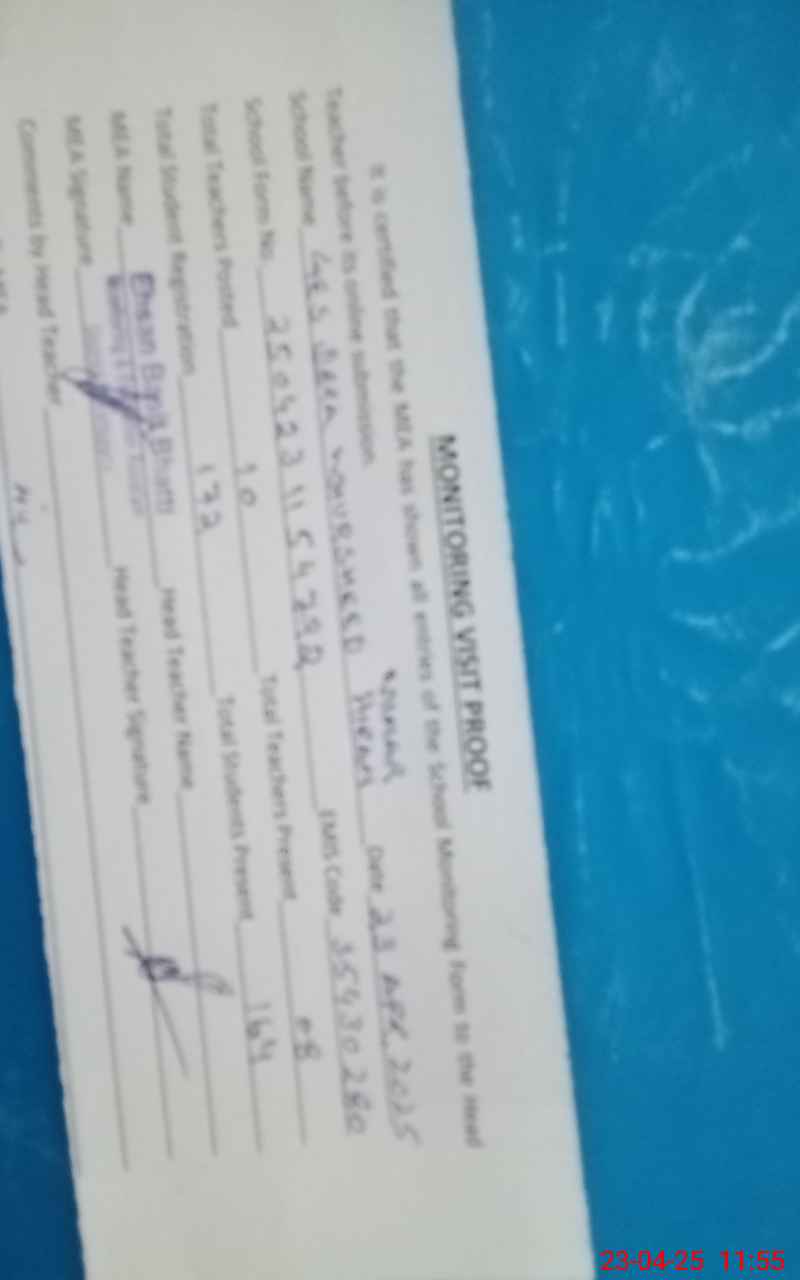 MONITORING VISIT PROOF
It is certified that the MEA has shown all entries of the School Monitoring Form to the Head
Teacher before its online submission.
School Name GES DERA Date 23 APR, 2025
School Form No. EMIS Code 35430280
Total Teachers Posted 10 Total Teachers Present 08
Total Student Registration 172 Total Students Present 164
MEA Name Ehsan Bhatti Head Teacher Name
MEA Signature Head Teacher Signature
Comments by Head Teacher
MEA
23-04-25 11:55